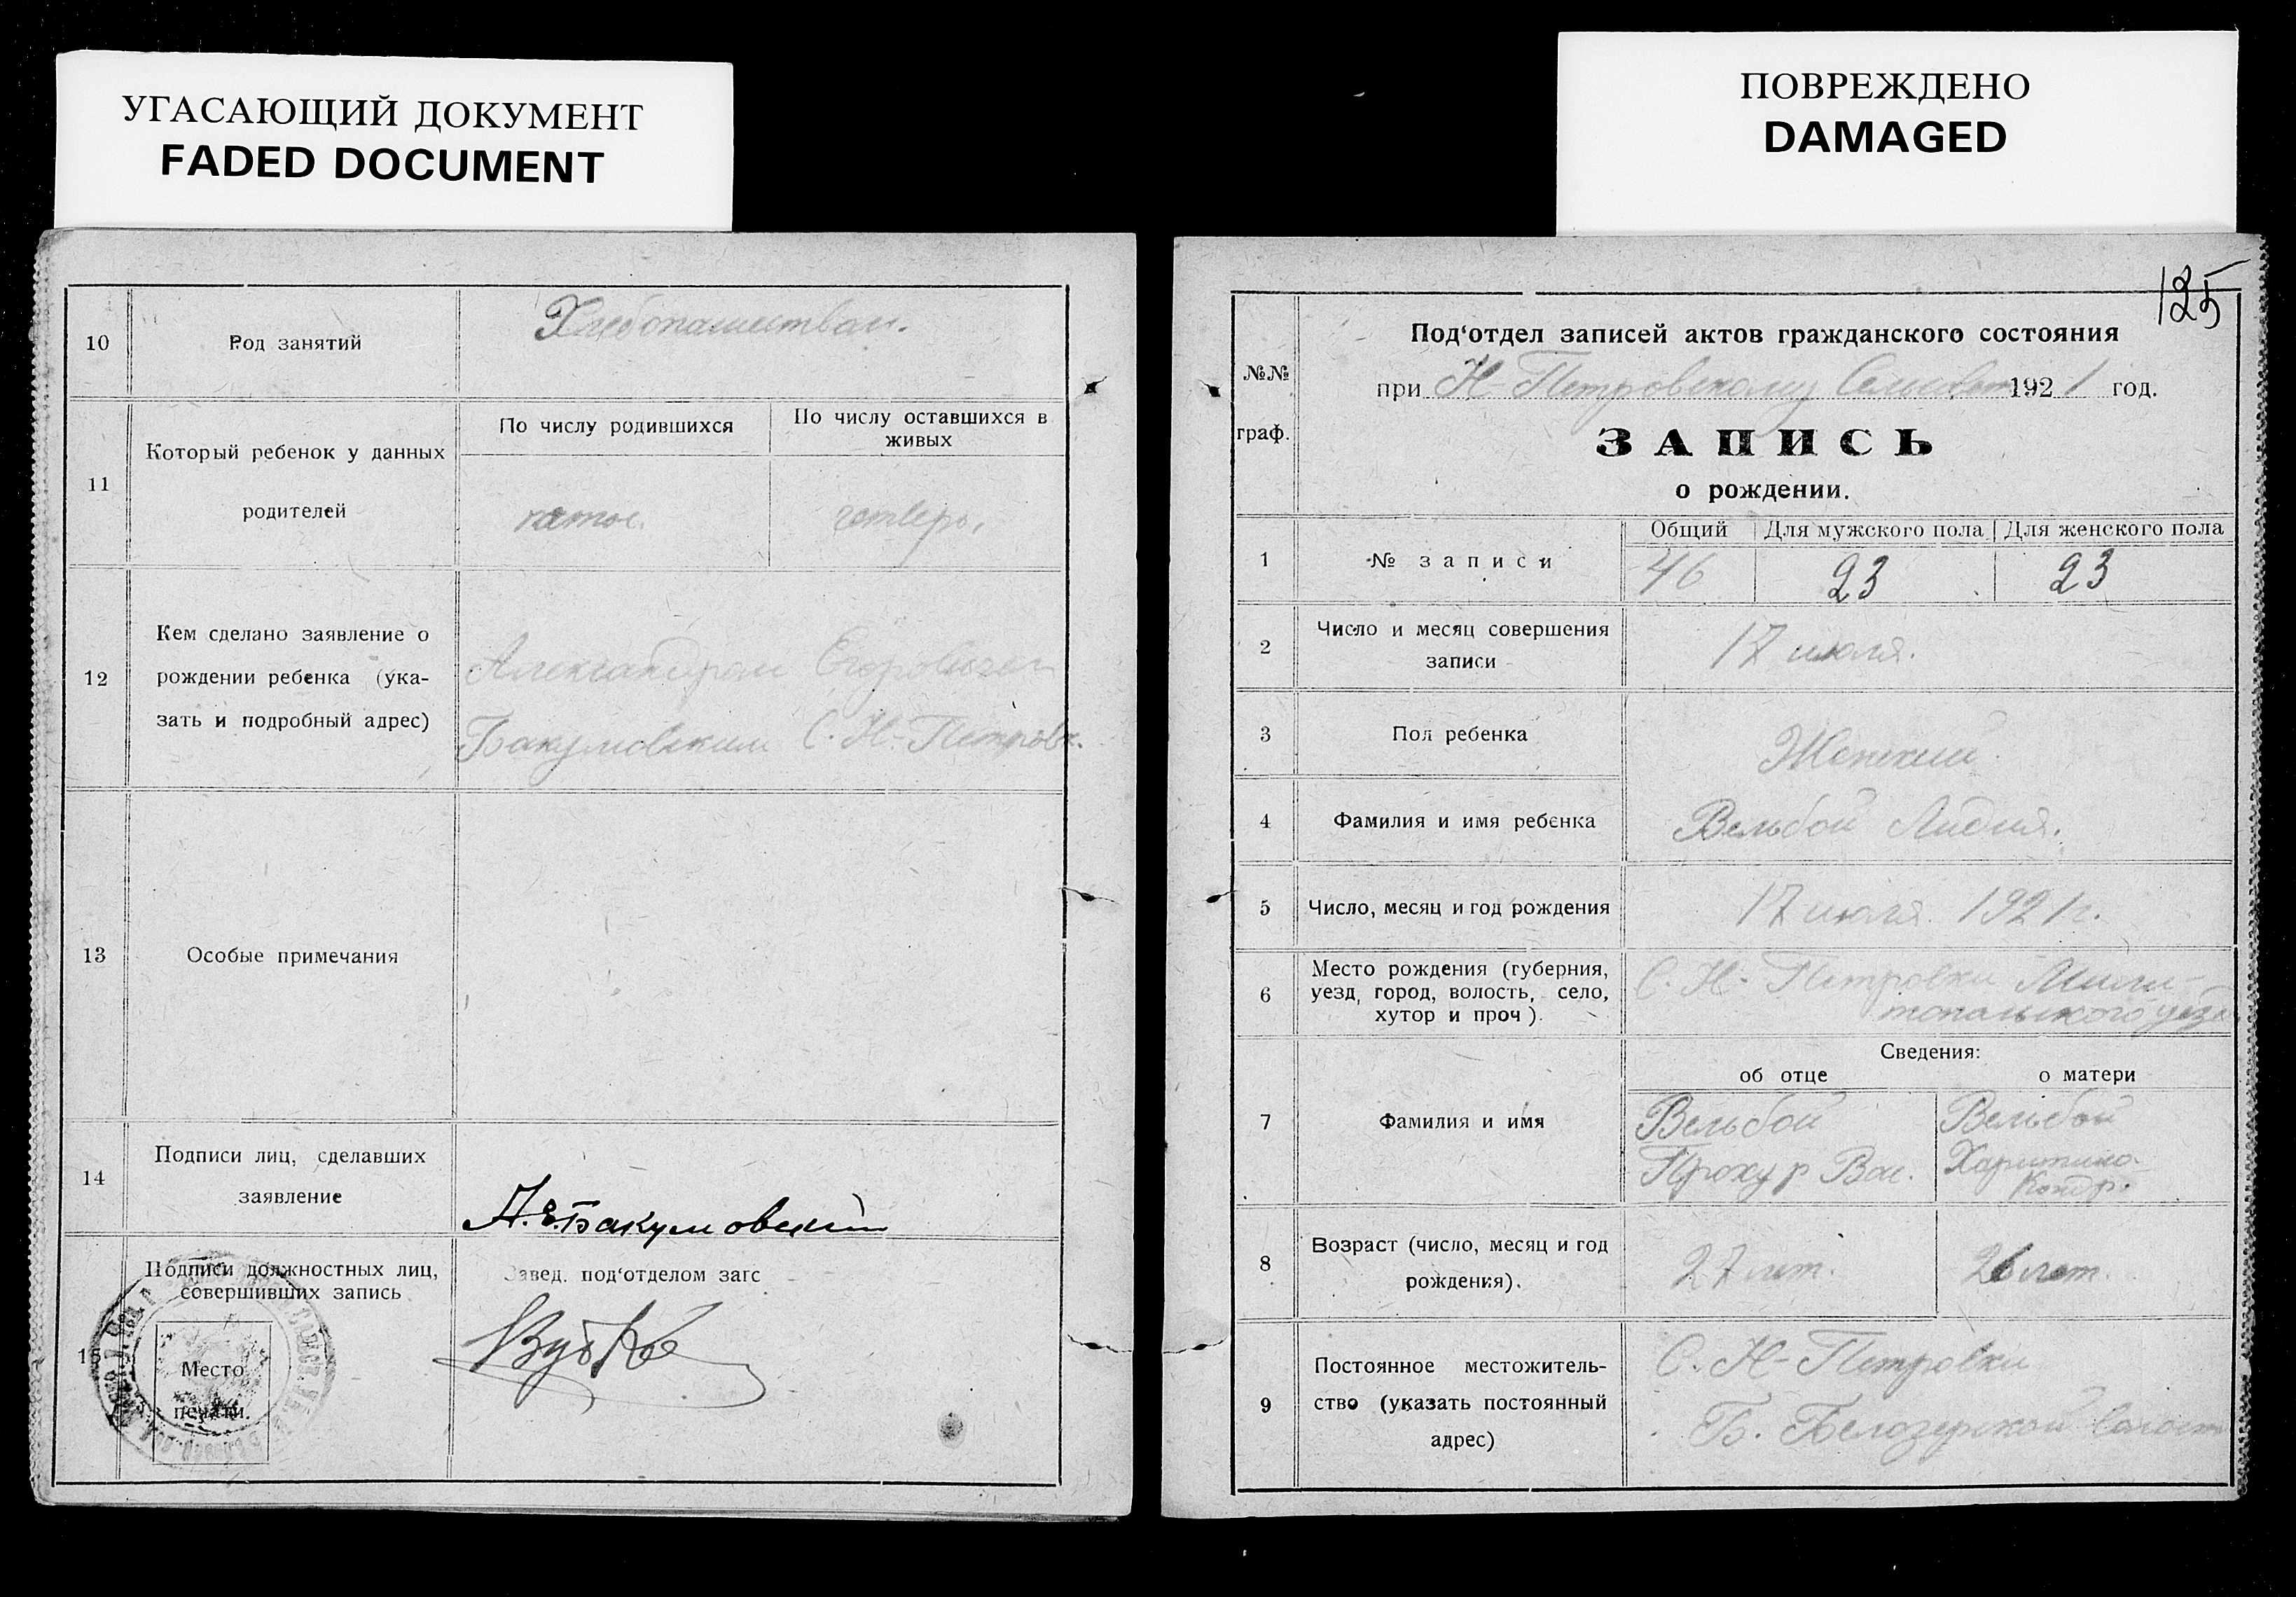 УГАСАЮЩИЙ ДОКУМЕНТ
FADED DOCUMENT
10
Род занятий
Хлебопашеством.
11
Который ребенок у данных
родителей
По числу родившихся
По числу оставшихся в
живых
пятое.
четверо.
12
Кем сделано заявление о
рождении ребенка (ука-
зать и подробный адрес)
Александром Егоровичем
Бакумовским С. Н-Петровк.
13
Особые примечания
14
Подписи лиц, сделавших
заявление
А. Е. Бакумовский
15
Подписи должностных лиц,
совершивших запись
Место
печати.
Завед. под‘отделом загс
ПОВРЕЖДЕНО
DAMAGED
125
№№
граф.
Под‘отдел записей актов гражданского состояния
при Н-Петровскому 1921 год.
ЗАПИСЬ
о рождении.
1
№ записи
Общий
Для мужского пола
Для женского пола
46
23
23
2
Число и месяц совершения
записи
17 июля.
3
Пол ребенка
Женский
4
Фамилия и имя ребенка
Вельбой Лидия.
5
Число, месяц и год рождения
17 июля 1921 г.
6
Место рождения (губерния,
уезд, город, волость, село,
хутор и проч).
С. Н-Петровки Мели-
топольского уезд
7
Фамилия и имя
Сведения:
об отце
о матери
Вельбой
Прохур Вас.
Вельбой
Харитина
Кондр.
8
Возраст (число, месяц и год
рождения).
27 лет.
26 лет.
9
Постоянное местожитель-
ство (указать постоянный
адрес)
С. Н-Петровки
Б. Белозерской волост